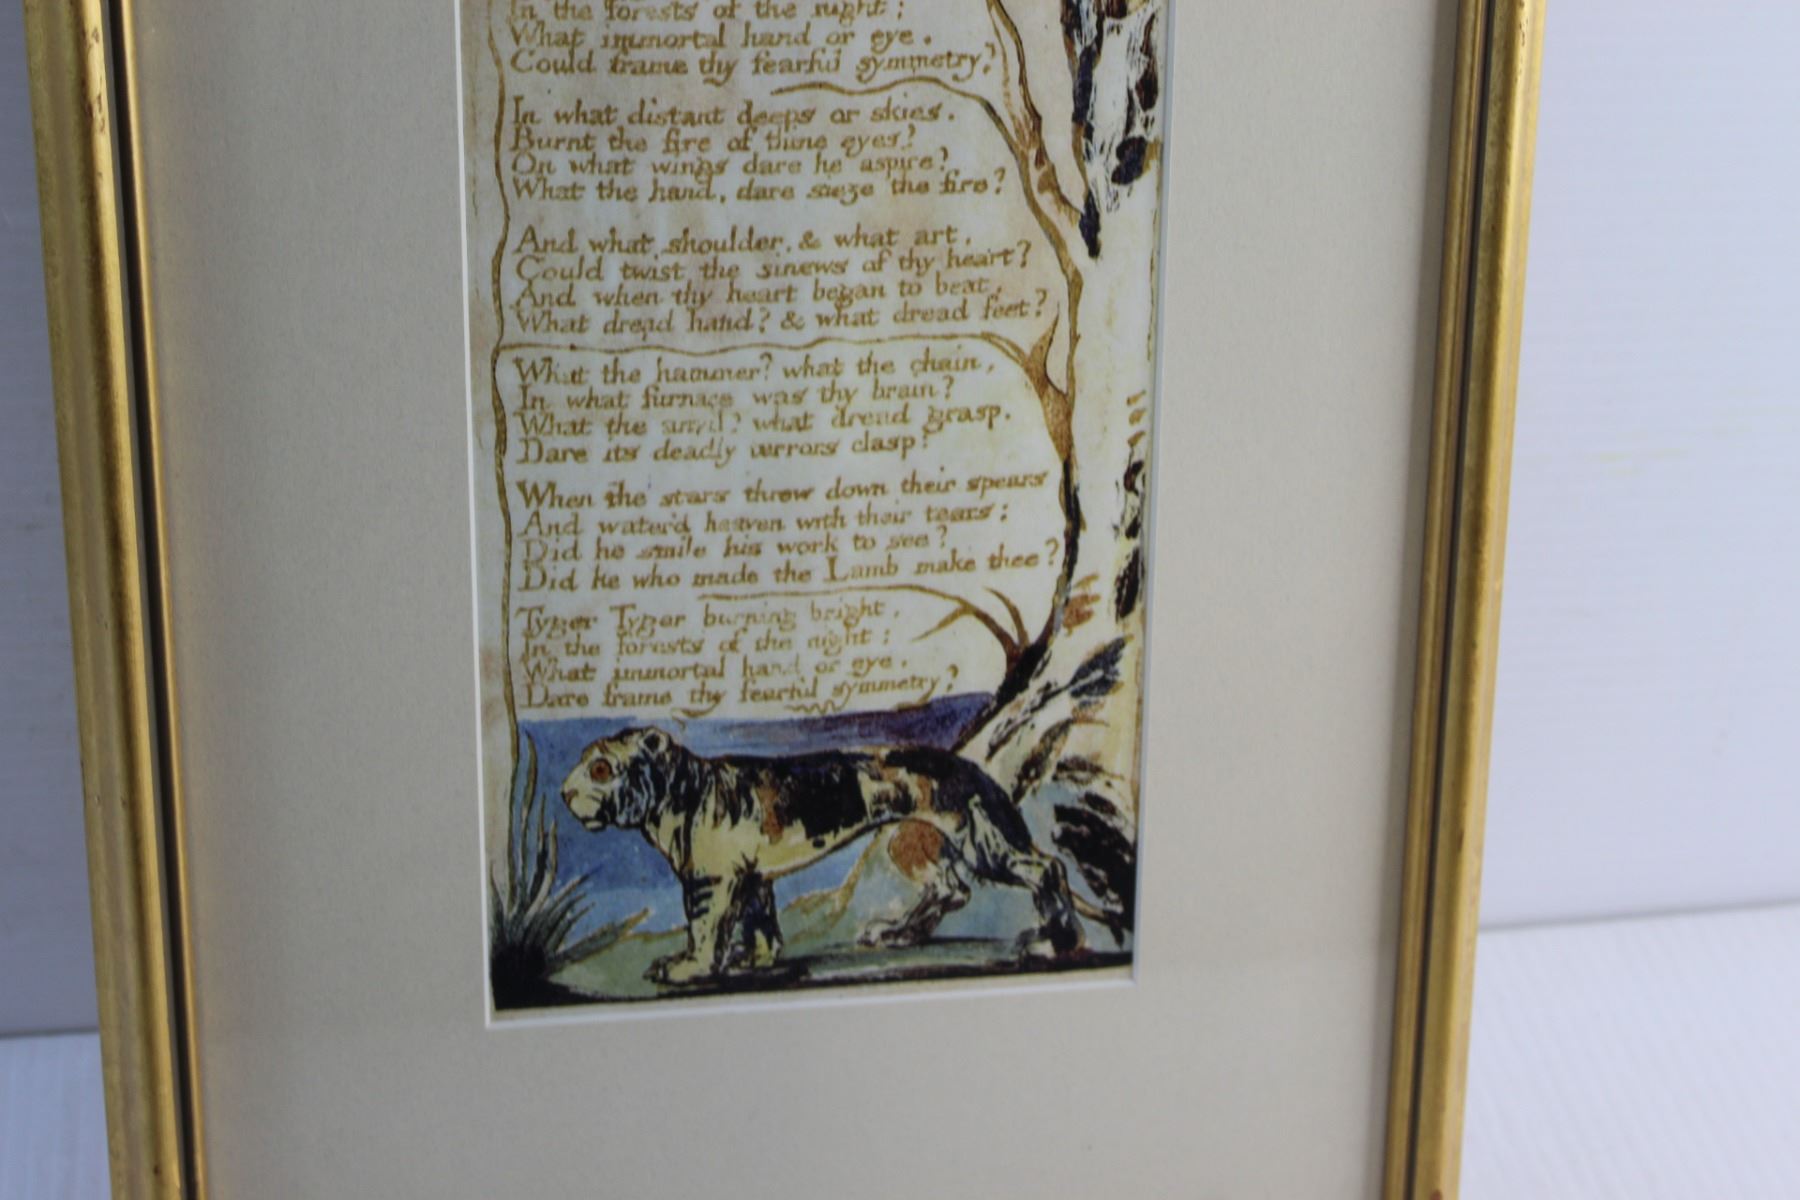 In the forests of the night;
What immortal hand or eye.
Could frame thy fearful symmetry?
In what distant deeps or skies.
Burnt the fire of thine eyes?
On what wings dare he aspire?
What the hand, dare sieze the fire?
And what shoulder, & what art,
Could twist the sinews of thy heart?
And when thy heart began to beat,
What dread hand? & what dread feet?
What the hammer? what the chain,
In what furnace was thy brain?
What the anvil? what dread grasp.
Dare its deadly terrors clasp?
When the stars threw down their spears
And water'd heaven with their tears:
Did he smile his work to see?
Did he who made the Lamb make thee?
Tyger Tyger burning bright,
In the forests of the night:
What immortal hand or eye.
Dare frame thy fearful symmetry?